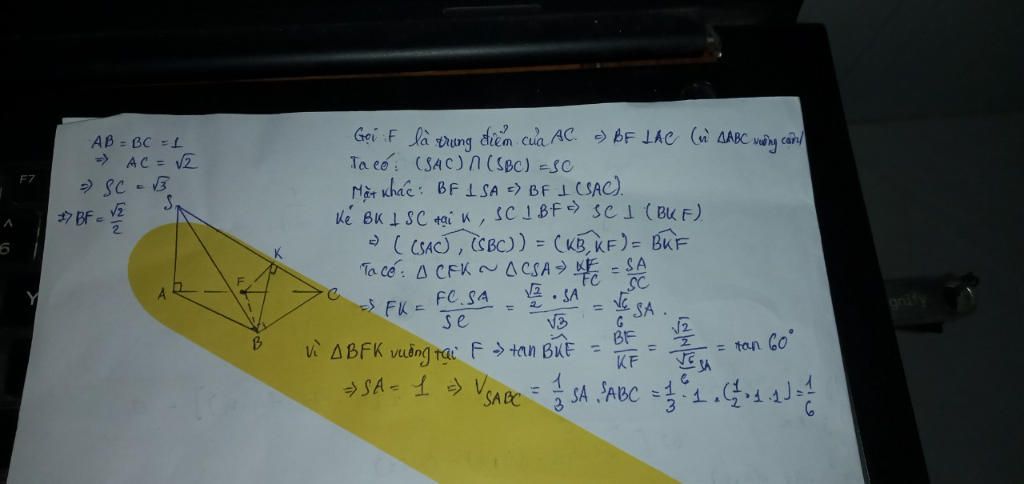 AB = BC = 1
⇒ AC = √2
⇒ SC = √3
⇒ BF = √2/2
S
K
F
A
C
B
Gọi F là trung điểm của AC. ⇒ BF ⊥ AC (vì ΔABC vuông cân)
Ta có: (SAC) ∩ (SBC) = SC
Mặt khác: BF ⊥ SA ⇒ BF ⊥ (SAC).
Kẻ BK ⊥ SC tại K, SC ⊥ BF ⇒ SC ⊥ (BKF)
⇒ ((SAC), (SBC)) = (KB, KF) = BKF
Ta có: Δ CFK ~ Δ CSA ⇒ KF/FC = SA/SC
⇒ FK = FC.SA/SC = (√2/2 . SA)/√3 = √6/6 SA.
vì ΔBFK vuông tại F ⇒ tan BKF = BF/KF = (√2/2)/(√6/6 SA) = tan 60°
⇒ SA = 1 ⇒ V SABC = 1/3 SA. SABC = 1/3 . 1 . (1/2 . 1 . 1) = 1/6
F7
^
6
Y